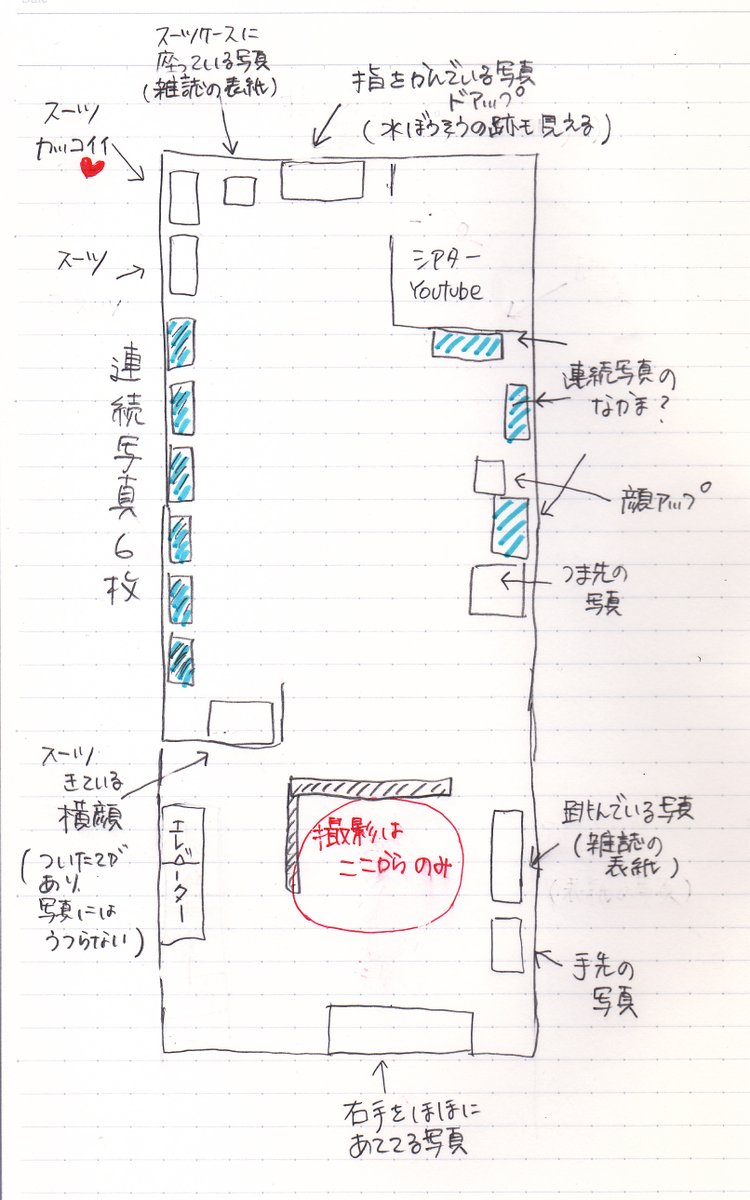 スーツケースに
座っている写真
(雑誌の表紙)
指をかんでいる写真
ドアップ
(水ぼうそうの跡も見える)
スーツ
カッコイイ
スーツ
シアター
Youtube
連続写真6枚
連続写真の
なかま?
顔アップ
つま先の
写真
スーツ
きている
横顔
(ついたてが
あり、
写真には
うつらない)
エレベーター
撮影は
ここからのみ
跳んでいる写真
(雑誌の
表紙)
手先の
写真
右手をほほに
あててる写真